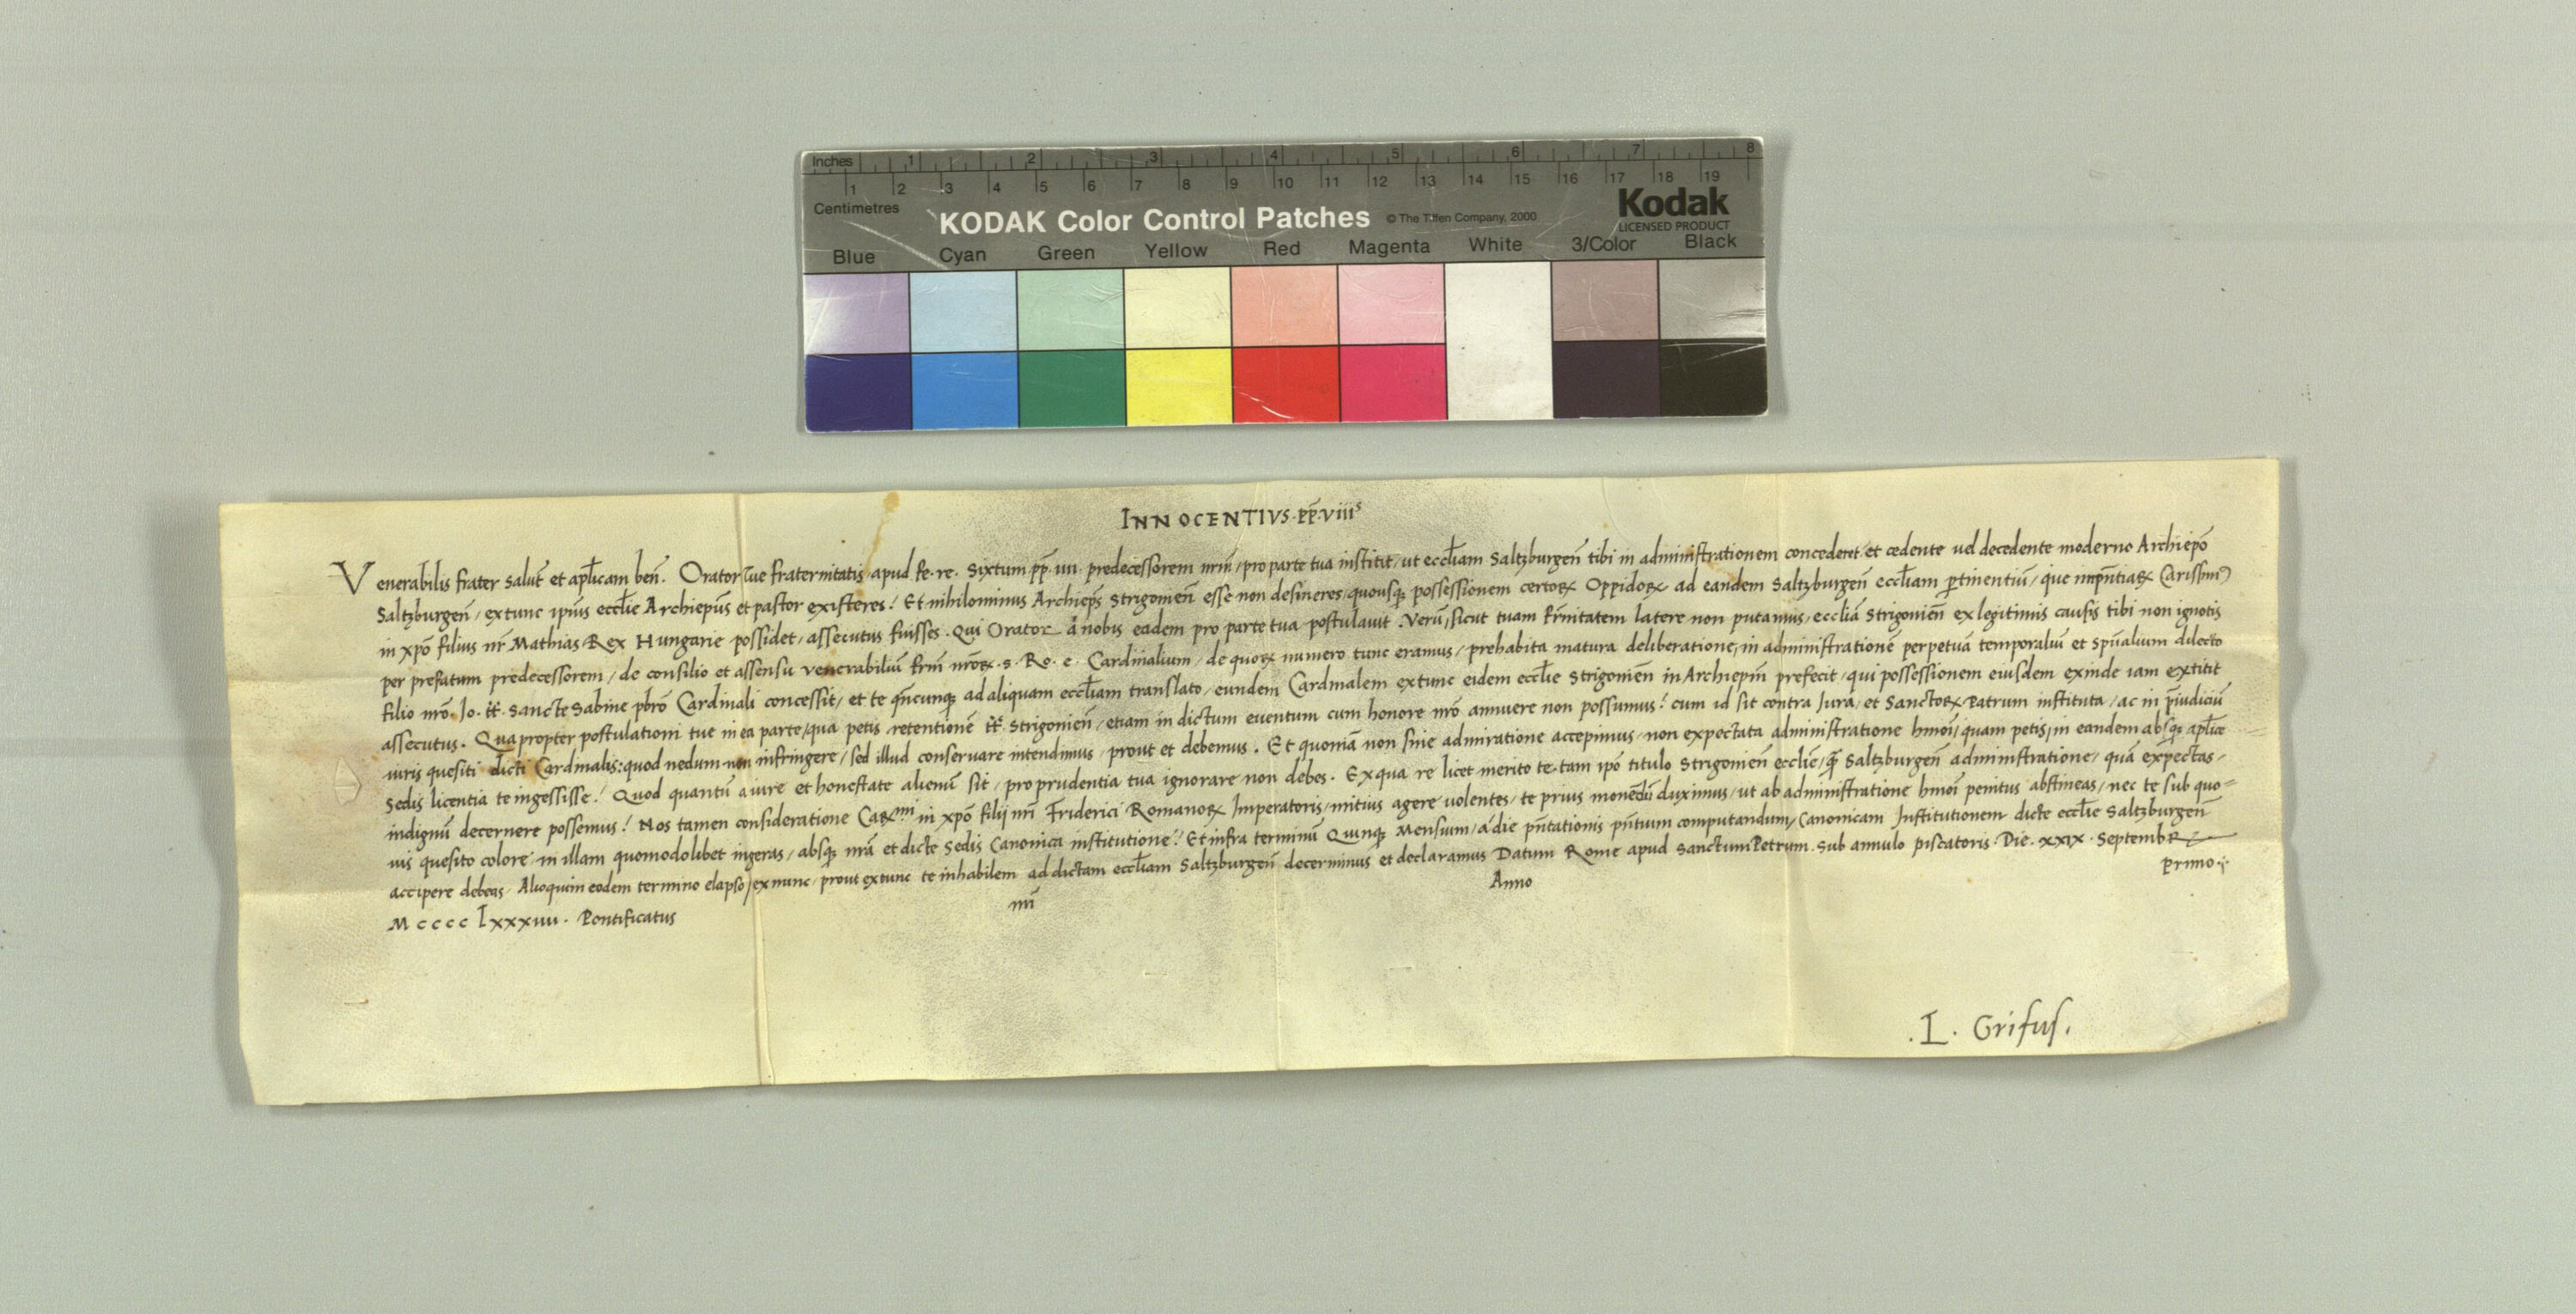 Inches 1 2 3 4 5 6 7 8
1 2 3 4 5 6 7 8 9 10 11 12 13 14 15 16 17 18 19
Centimetres
KODAK Color Control Patches © The Tiffen Company, 2000 Kodak
LICENSED PRODUCT
Blue Cyan Green Yellow Red Magenta White 3/Color Black
INNOCENTIVS · pp̄ · viiiˢ
Venerabilis frater salut̄ et apl̄icam ben̄. Orator tue fraternitatis apud fe. re. Sixtum pp̄ iiii predecessorem nr̄m / pro parte tua institit / ut eccl̄iam Saltzburgen̄ tibi in administrationem concederet / et cedente uel decedente moderno Archiepō
Saltzburgen̄ / extunc ipius eccl̄ie Archiepūs et pastor existeres: Et nihilominus Archiep̄s Strigonien̄ esse non desineres / quousqꝫ possessionem certoꝝ Oppidoꝝ ad eandem Saltzburgen̄ eccl̄iam ꝑtinentiū / que inpn̄tiaꝝ Carissim9
in xpō filius nr̄ Mathias Rex Hungarie possidet / assecutus fuisses. Qui Orator a nobis eadem pro parte tua postulauit. Verū / sicut tuam fr̄nitatem latere non putamus / eccliā Strigonien̄ ex legitimis causis tibi non ignotis
per prefatum predecessorem / de consilio et assensu venerabiliū fr̄m nr̄oꝝ. S. Ro. e. Cardinalium / de quoꝝ numero tunc eramus / prehabita matura deliberatione / in administrationē perpetuā temporaliū et spūalium dilecto
filio nrō. Jo. tt̄. Sancte Sabine pbrō Cardinali concessit / et te qn̄cunqꝫ ad aliquam eccl̄iam translato / eundem Cardinalem extunc eidem eccl̄ie Strigonien̄ in Archiepm̄ prefecit / qui possessionem eiusdem exinde iam extitit
assecutus. Quapropter postulationi tue in ea parte / qua petis retentionē tt̄. Strigonien̄ / etiam in dictum euentum cum honore nrō annuere non possumus: cum id sit contra Jura / et Sanctoꝝ Patrum instituta / ac in p̄iudiciū
iuris quesiti dicti Cardinalis: quod nedum non infringere / sed illud conseruare intendimus / prout et debemus. Et quoniā non sine admiratione accepimus / non expectata administratione hm̄oi / quam petis / in eandem absqꝫ apl̄ice
Sedis licentia te ingessisse: Quod quantū a iure et honestate alienū sit / pro prudentia tua ignorare non debes. Ex qua re licet merito te tam ipō titulo Strigonien̄ eccl̄ie / q̄ Saltzburgen̄ administratione / quā expectas /
indignū decernere possemus: Nos tamen consideratione Caꝝmi in xpō filij nr̄i Friderici Romanoꝝ Imperatoris / mitius agere uolentes / te prius monendū duximus / ut ab administratione hm̄oi penitus abstineas / nec te sub quo=
uis quesito colore in illam quomodolibet ingeras / absqꝫ nrā et dicte Sedis Canonica institutione: Et infra terminū Quinqꝫ Mensium / a die pn̄tationis pn̄tium computandum / Canonicam Institutionem dicte eccl̄ie Saltzburgen̄
accipere debeas. Alioquin eodem termino elapso / exnunc prout extunc te inhabilem ad dictam eccl̄iam Saltzburgen̄ decernimus et declaramus Datum Rome apud Sanctum Petrum. Sub annulo piscatoris. Die. xxix. Septembr
M cccc lxxxiiii. Pontificatus nr̄i Anno Primo
.L. Grifus.